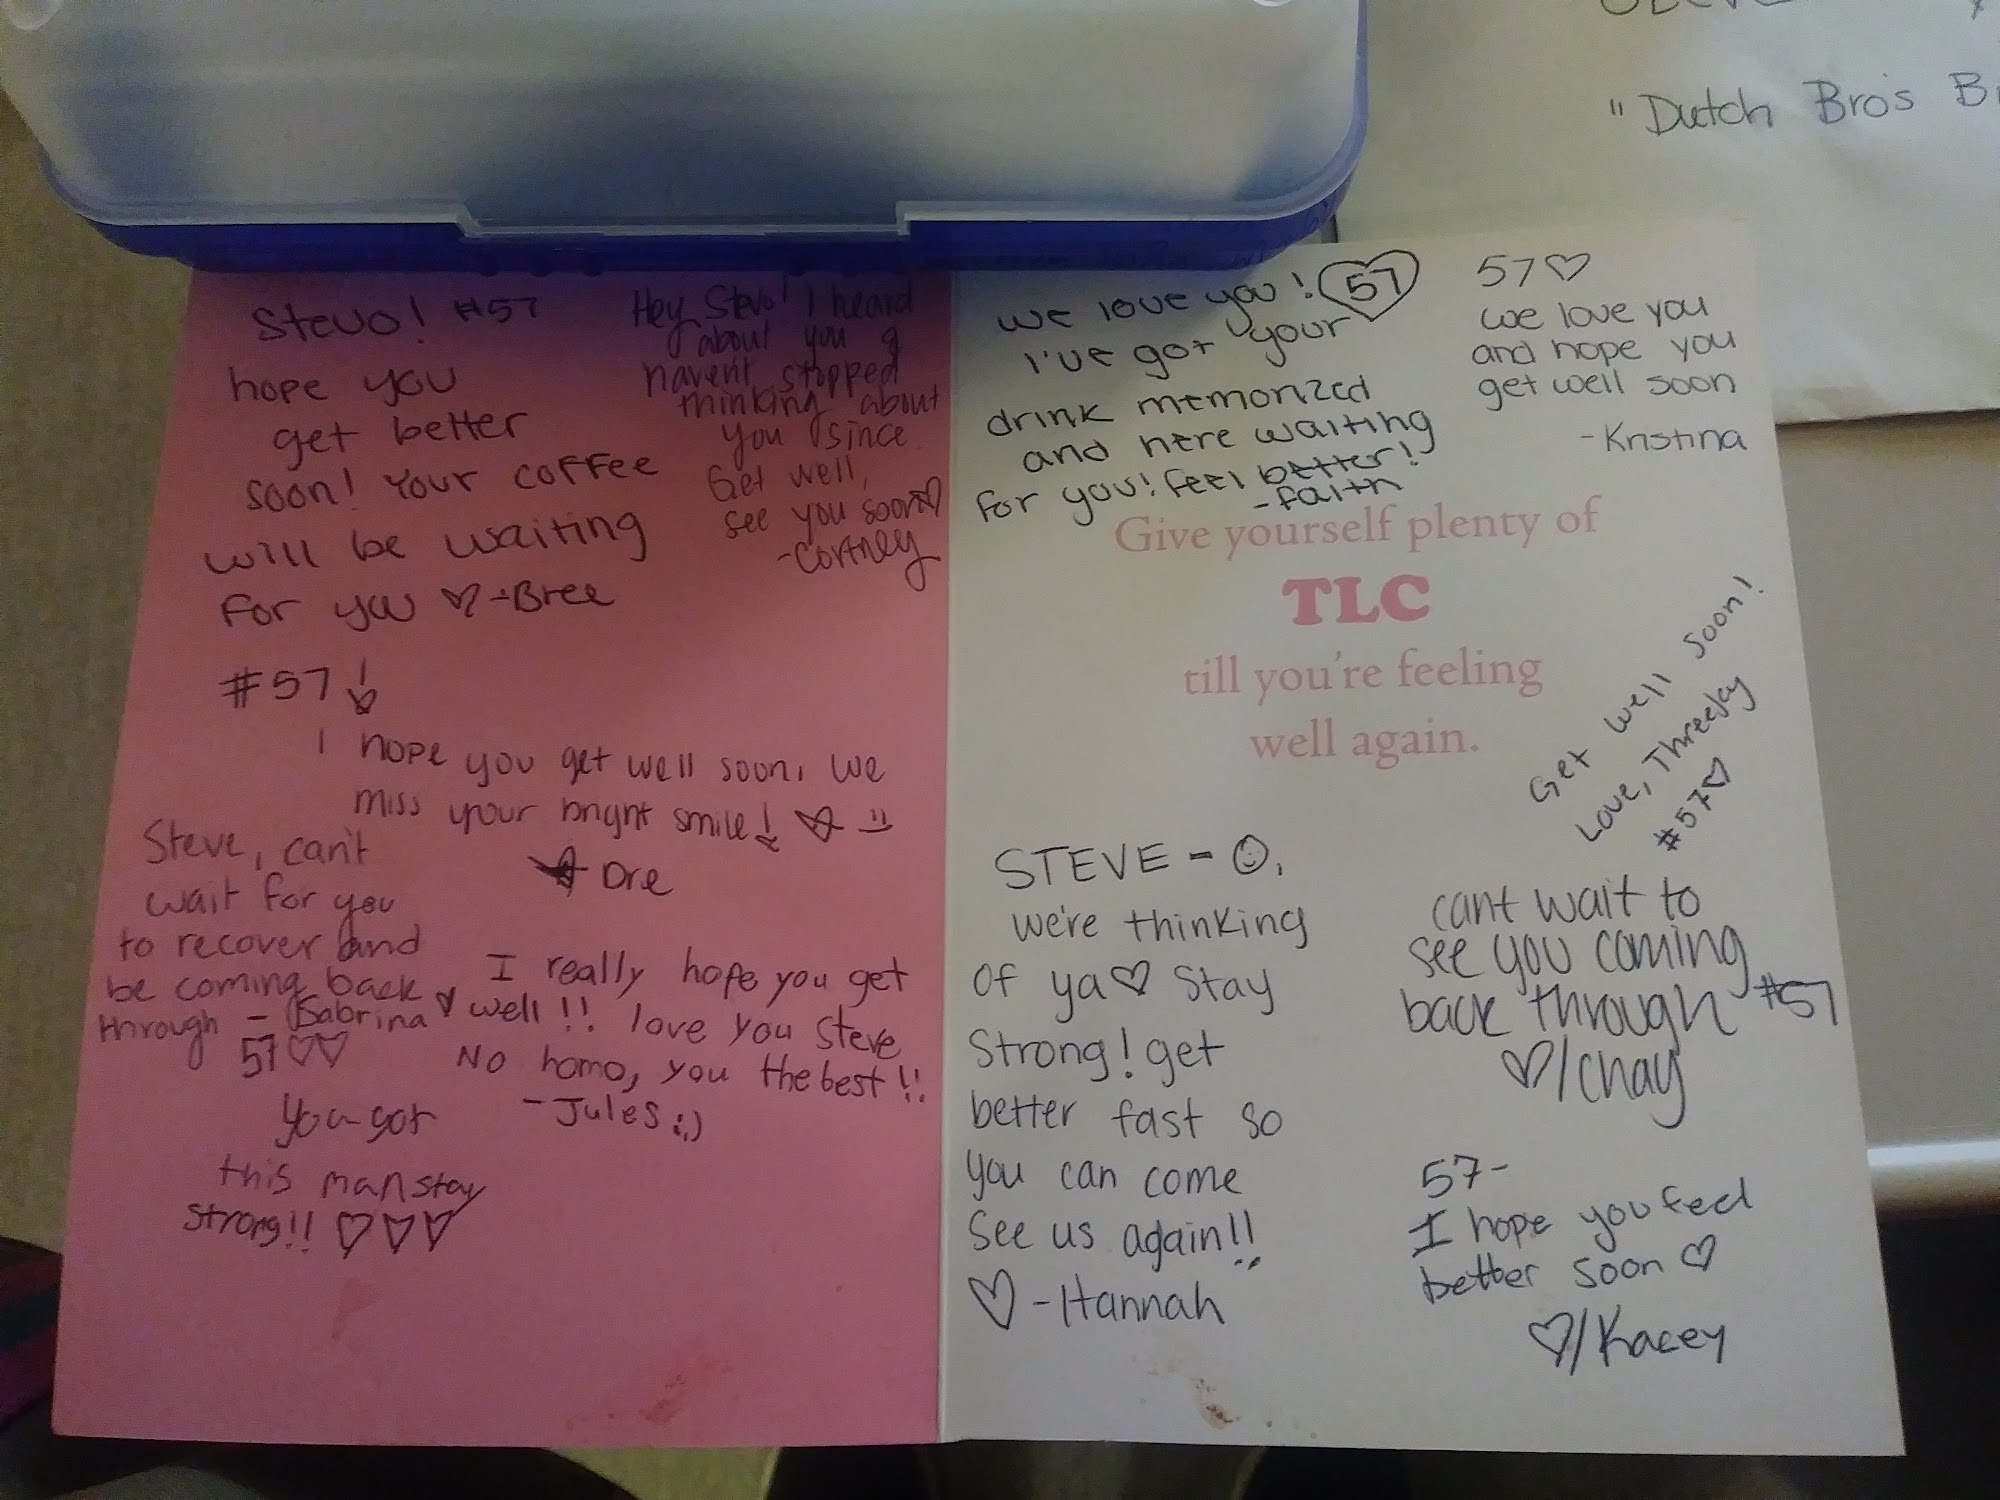 "Dutch Bro's
Stevo! #57
hope you
get better
soon! Your coffee
will be waiting
for you ♡ -Bree
Hey Stevo! I heard
about you &
havent stopped
thinking about
you since.
Get well,
see you soon♡
-Cortney
#57!
I hope you get well soon, we
miss your bright smile!
Dre
Steve, can't
wait for you
to recover and
be coming back
through - Sabrina
57♡♡
I really hope you get
well!! love you Steve
No homo, you the best!!
-Jules :,)
You got
this man stay
strong!! ♡♡♡
we love you! 57
I've got your
drink memorized
and here waiting
for you! feel better!
-Faith
57♡
we love you
and hope you
get well soon
-Kristina
Give yourself plenty of
TLC
till you're feeling
well again.
Get well soon!
Love,
#57♡
STEVE-☺,
we're thinking
of ya♡ Stay
Strong! get
better fast so
you can come
see us again!!
♡-Hannah
cant wait to
see you coming
back through #57
♡/Chay
57-
I hope you feel
better soon♡
♡/Kacey